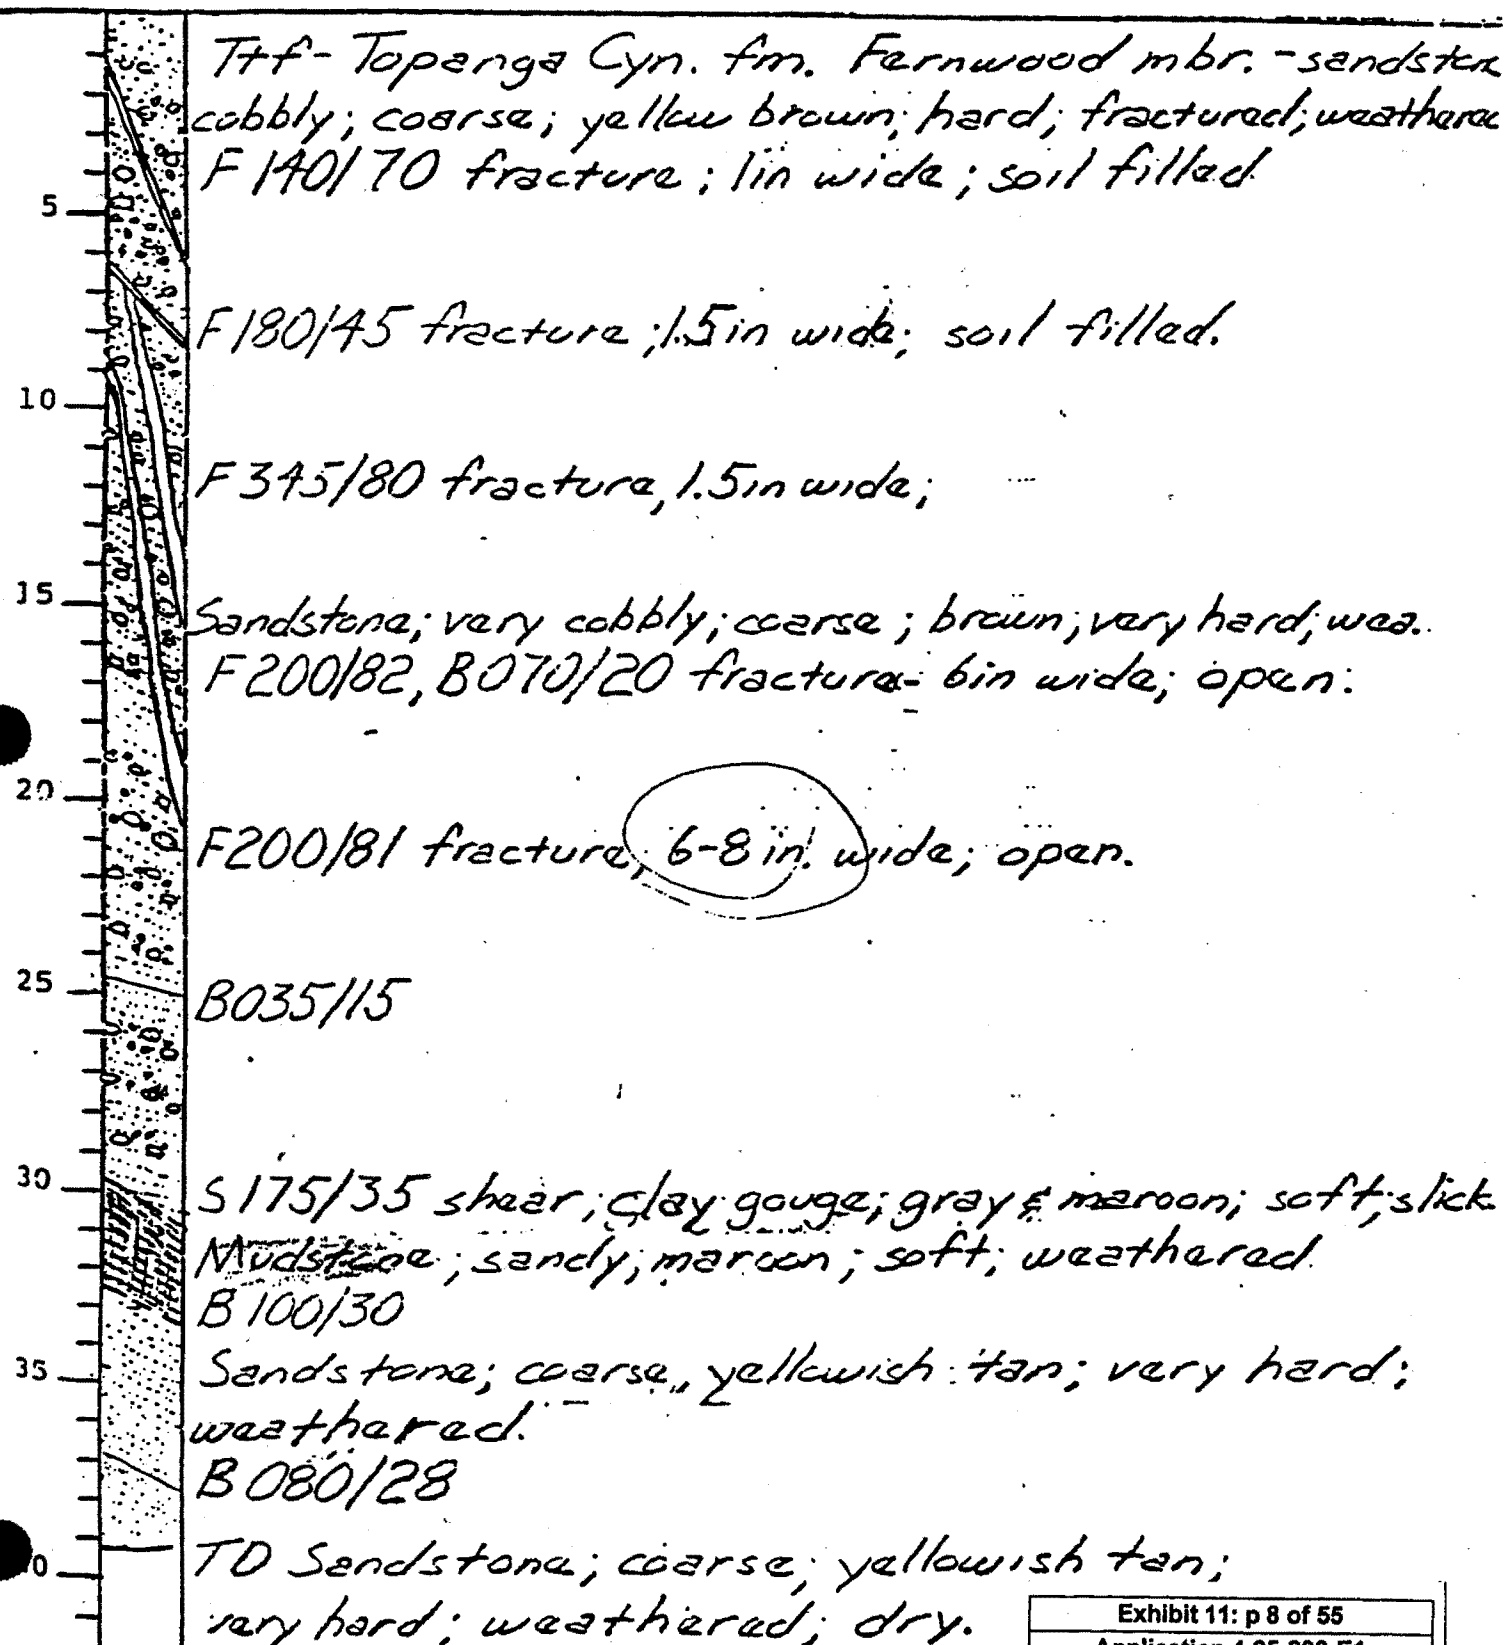 Ttf- Topanga Cyn. fm. Fernwood mbr. - sandstone
cobbly; coarse; yellow brown; hard; fractured; weathered
F 140/70 fracture; 1in wide; soil filled
5
F180/45 fracture; 1.5in wide; soil filled.
10
F345/80 fracture, 1.5in wide;
15
Sandstone; very cobbly; coarse; brown; very hard; wea.
F200/82, B070/20 fracture- 6in wide; open.
20
F200/81 fracture, 6-8 in. wide; open.
25
B035/15
30
S 175/35 shear; clay gouge; gray & maroon; soft; slick.
Mudstone; sandy; maroon; soft; weathered.
B 100/30
35
Sandstone; coarse, yellowish tan; very hard;
weathered.
B 080/28
0
TD Sandstone; coarse; yellowish tan;
very hard; weathered; dry.
Exhibit 11: p 8 of 55